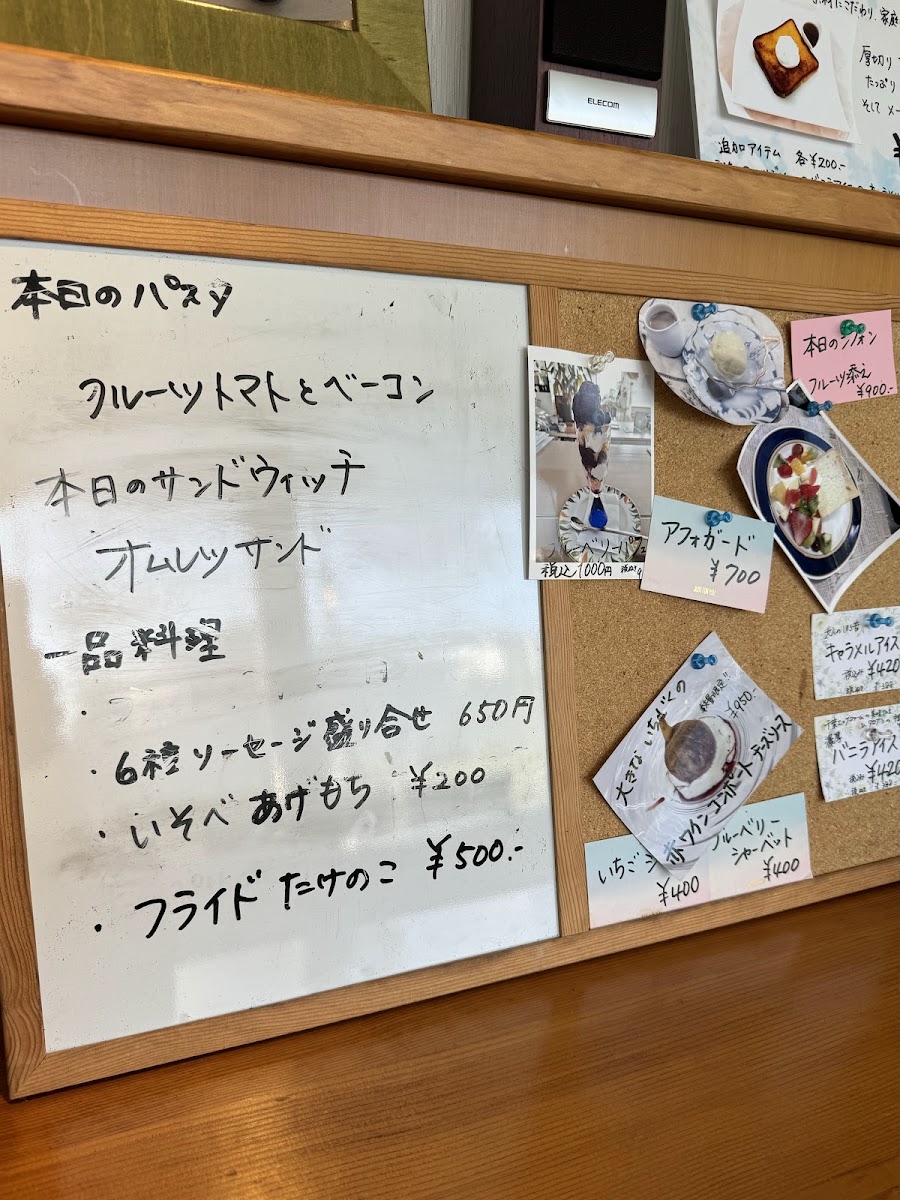 本日のパスタ
フルーツトマトとベーコン
本日のサンドウィッチ
オムレツサンド
一品料理
・6種ソーセージ盛り合せ 650円
・いそべあげもち ¥200
・フライドたけのこ ¥500.-
ELECOM
にこだわり、家庭
厚切り
たっぷり
そして メー
追加アイテム 各¥200.-
本日のシフォン
フルーツ添え
¥900.-
ブルーベリーパフェ
税込1000円
アフォガード
¥700
キャラメルアイス
¥420
バニラアイス
¥420
大きないちじくの
数量限定!!
¥950.-
赤ワインコンポート チーズソース
いちご
¥400
ブルーベリー
シャーベット
¥400